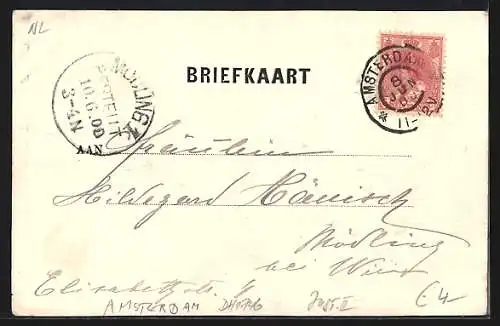 NL
BRIEFKAART
AMSTERDAM
8
JUN
11-
MÖDLING
BESTELLT
10.6.00
3-4N
AAN
Fräulein
Hildegard Hänisch
Mödling
bei Wien
Elisabethstr.
AMSTERDAM